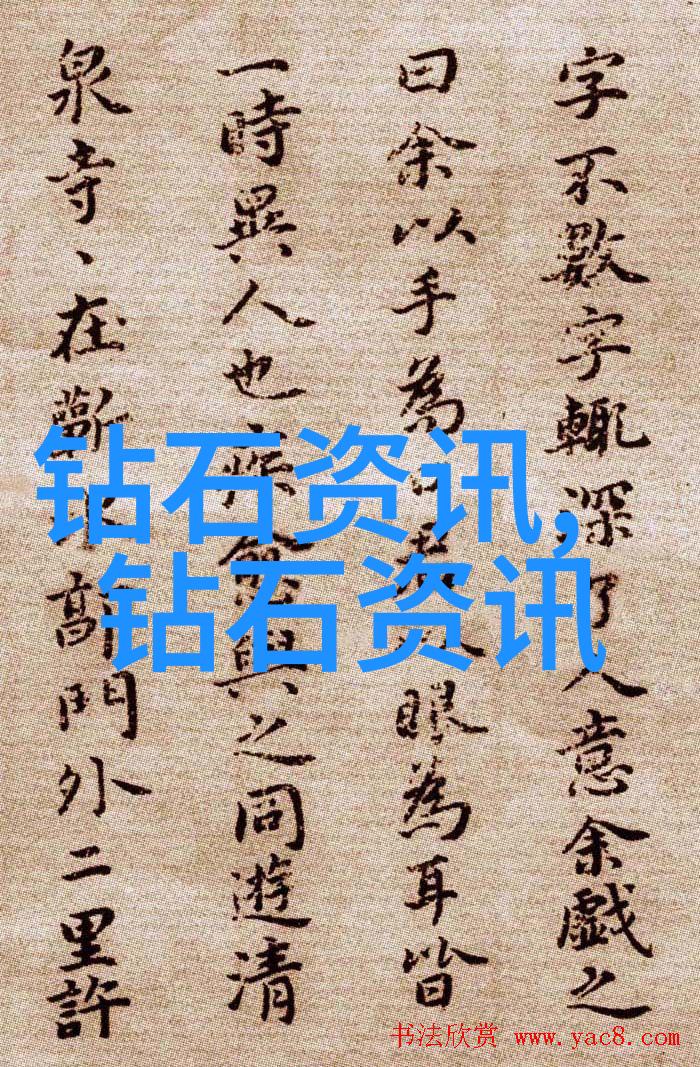 字不數字輙深了人意余戲之
曰余以手為眼為耳皆
一時異人也疾與之同遊清
泉寺、在蘄郭門外二里許
钻石资讯,
钻石资讯
书法欣赏 www.yac8.com